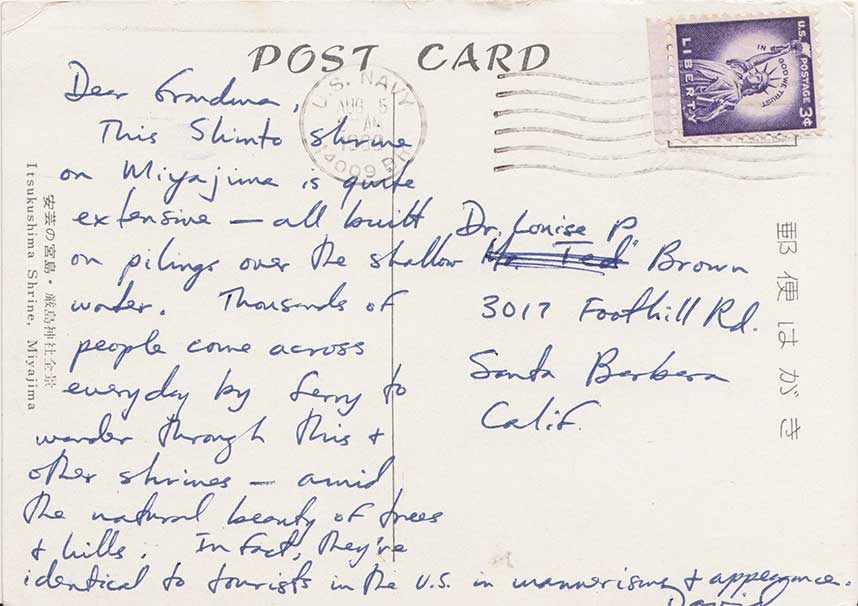 POST CARD
U.S. NAVY
AUG 5
AM
14009 BR
U.S. POSTAGE 3¢
IN GOD WE TRUST
LIBERTY
Dear Grandma,
This Shinto shrine
on Miyajima is quite
extensive — all built
on pilings over the shallow
water. Thousands of
people come across
everyday by ferry to
wander through this +
other shrines — amid
the natural beauty of trees
+ hills. In fact, they're
identical to tourists in the U.S. in mannerisms + appearance.
David
Dr. Louise P
Mr. "Ted" Brown
3017 Foothill Rd.
Santa Barbara
Calif.
安芸の宮島・厳島神社全景
Itsukushima Shrine, Miyajima
郵便はがき